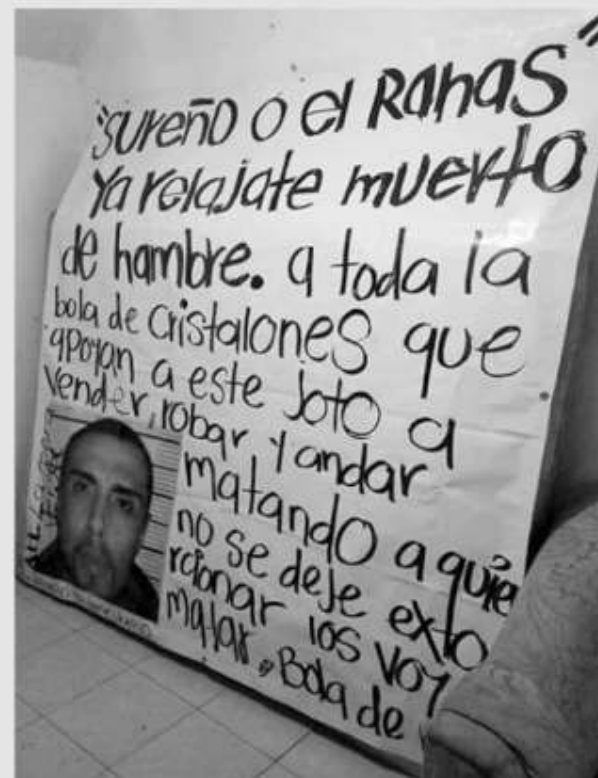 "SUREÑO O El RANAS"
Ya relajate muerto
de hambre. a toda la
bola de cristalones que
apoyan a este joto a
vender, robar y andar
matando a quie
no se deje exto
rcionar los voy
matar, Bola de